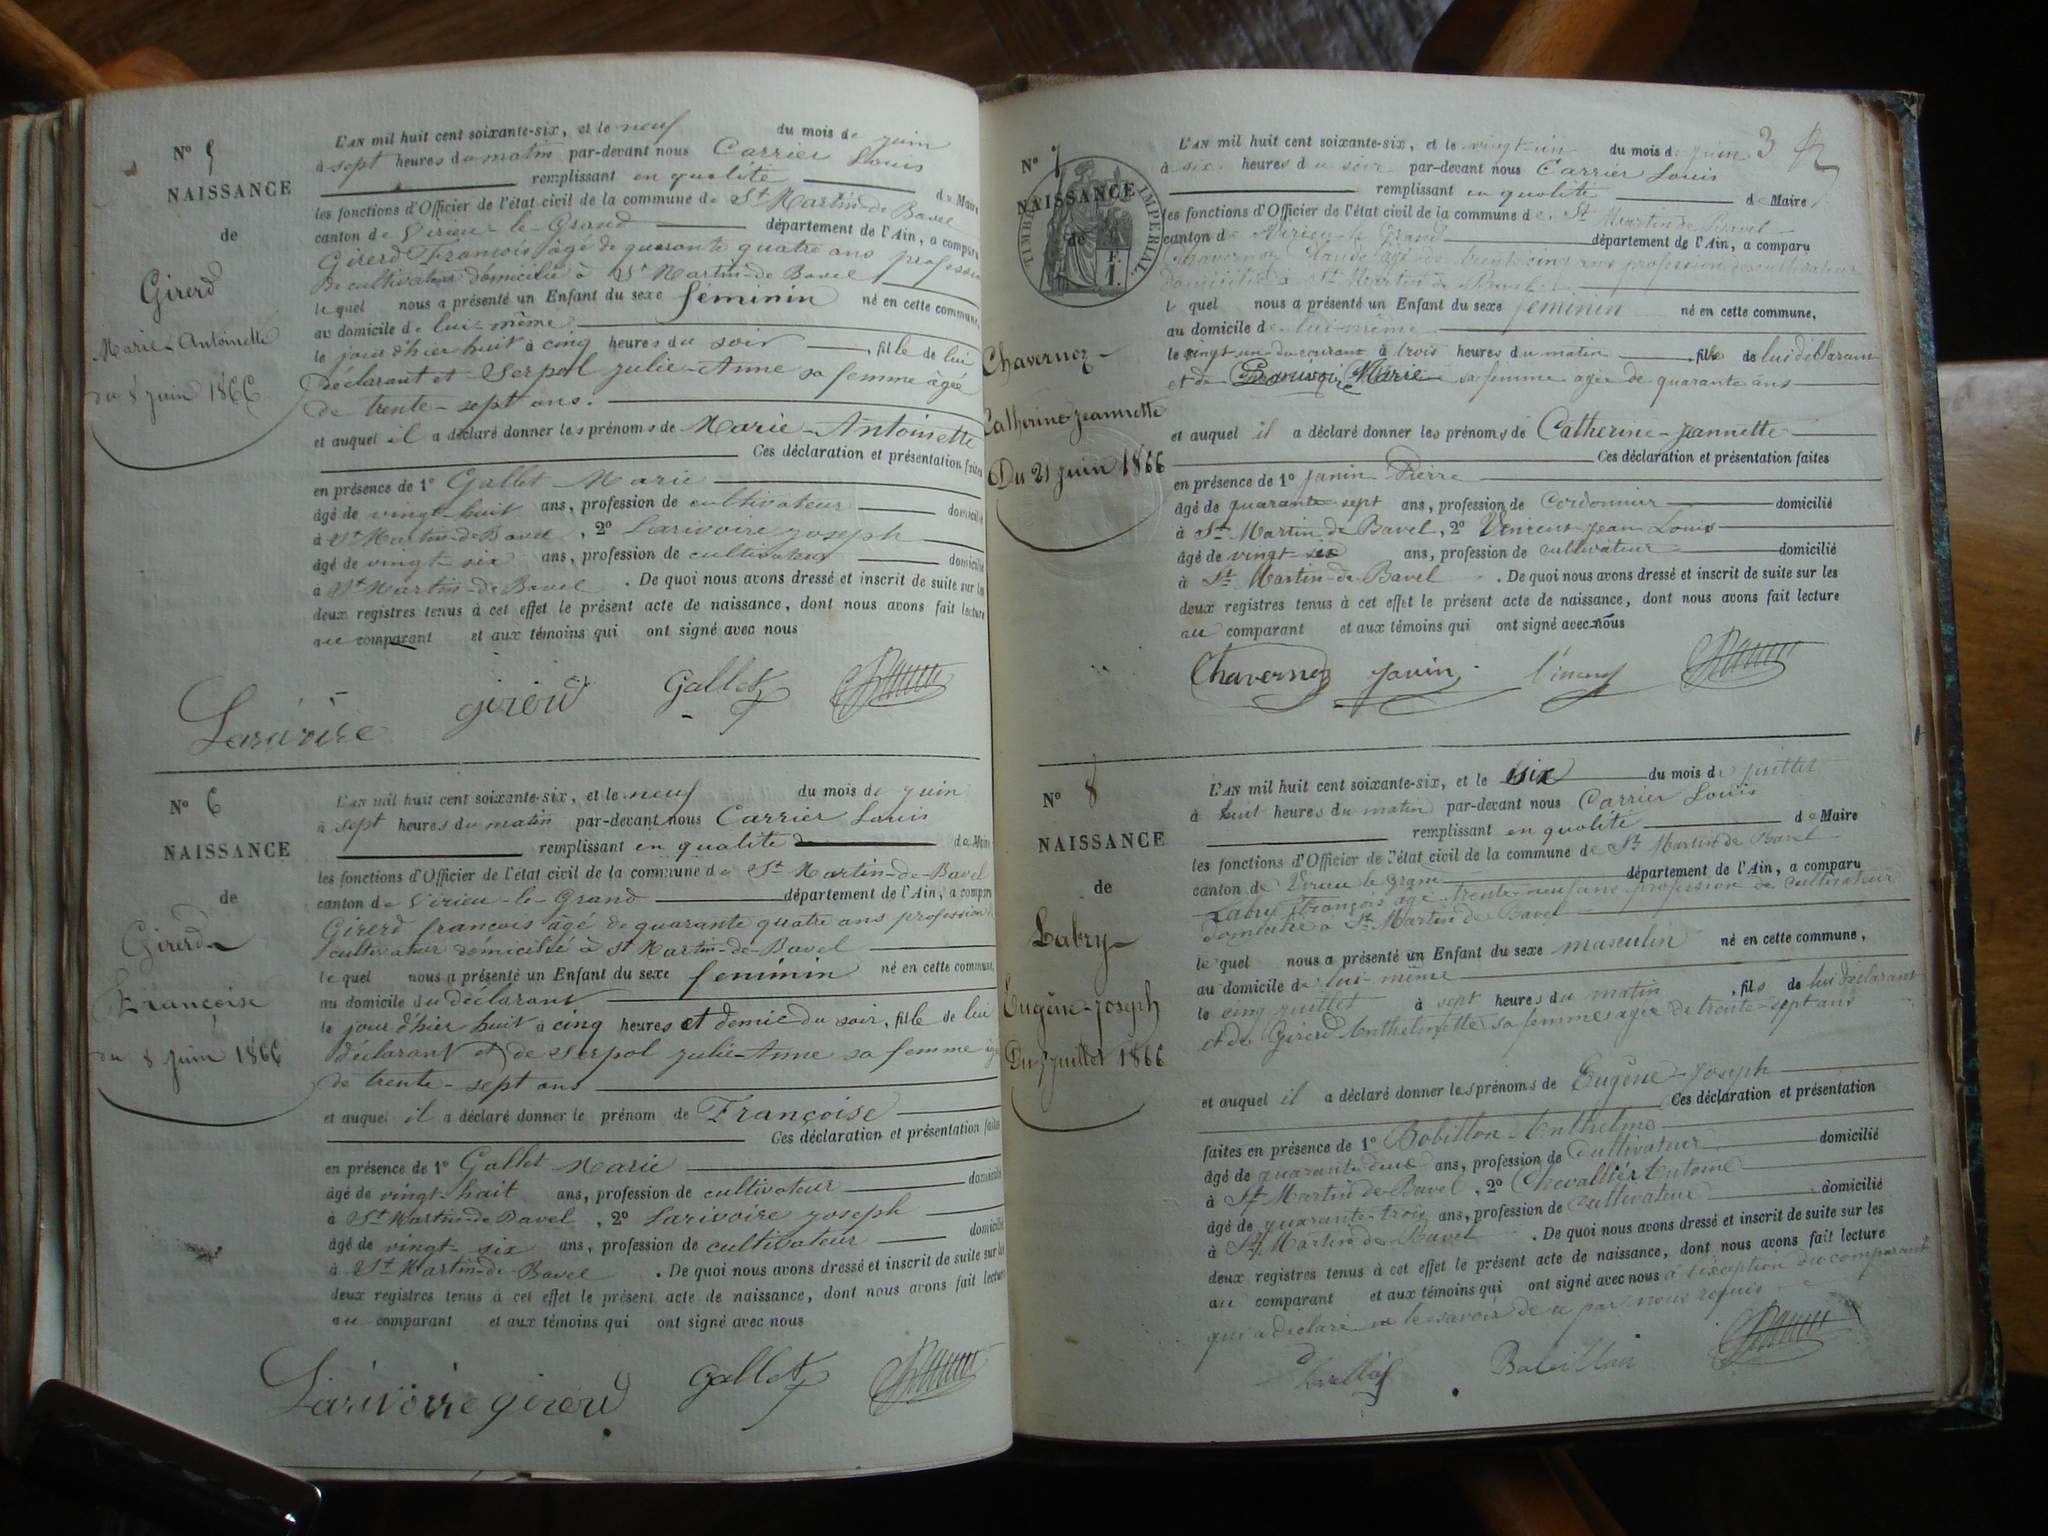 N° 5
NAISSANCE
de
Girerd
Marie-Antoinette
du 8 juin 1866
L'AN mil huit cent soixante-six, et le neuf du mois de juin
à sept heures du matin par-devant nous Carrier Louis
remplissant en qualité de Maire
les fonctions d'Officier de l'état civil de la commune de St Martin-de Bavel
canton de Virieu-le-Grand département de l'Ain, a comparu
Girerd Francois âgé de quarante quatre ans profession
de cultivateur domicilié à St Martin-de Bavel
le quel nous a présenté un Enfant du sexe féminin né en cette commune,
au domicile de lui-même
le jour d'hier huit à cinq heures du soir fille de lui
déclarant et Serpol julie-Anne sa femme âgée
de trente-sept ans.
et auquel il a déclaré donner les prénoms de Marie-Antoinette
Ces déclaration et présentation faites
en présence de 1° Gallet Marie
âgé de vingt-huit ans, profession de cultivateur domicilié
à St Martin-de Bavel, 2° Larivoire joseph
âgé de vingt-six ans, profession de cultivateur domicilié
à St Martin-de Bavel. De quoi nous avons dressé et inscrit de suite sur les
deux registres tenus à cet effet le présent acte de naissance, dont nous avons fait lecture
au comparant et aux témoins qui ont signé avec nous
Larivoire girerd Gallet
N° 6
NAISSANCE
de
Girerd
Françoise
du 8 juin 1866
L'AN mil huit cent soixante-six, et le neuf du mois de juin
à sept heures du matin par-devant nous Carrier Louis
remplissant en qualité de Maire
les fonctions d'Officier de l'état civil de la commune de St Martin-de-Bavel
canton de Virieu-le-Grand département de l'Ain, a comparu
Girerd francois âgé de quarante quatre ans profession de
cultivateur domicilié à St Martin-de-Bavel
le quel nous a présenté un Enfant du sexe feminin né en cette commune,
au domicile du déclarant
le jour d'hier huit à cinq heures et demie du soir, fille de lui
déclarant et de Serpol julie-Anne sa femme âgée
de trente-sept ans
et auquel il a déclaré donner le prénom de Françoise
Ces déclaration et présentation faites
en présence de 1° Gallet Marie
âgé de vingt-huit ans, profession de cultivateur domicilié
à St Martin-de Bavel, 2° Larivoire joseph
âgé de vingt-six ans, profession de cultivateur domicilié
à St Martin-de-Bavel. De quoi nous avons dressé et inscrit de suite sur les
deux registres tenus à cet effet le présent acte de naissance, dont nous avons fait lecture
au comparant et aux témoins qui ont signé avec nous
Larivoire girerd Gallet
3
N° 7
NAISSANCE
de
TIMBRE IMPERIAL
F. 1.
Chavernoz
Catherine jeannette
Du 21 juin 1866
L'AN mil huit cent soixante-six, et le vingt-un du mois de juin
à six heures du soir par-devant nous Carrier Louis
remplissant en qualité de Maire
les fonctions d'Officier de l'état civil de la commune de St Martin de Bavel
canton de Virieu-le Grand département de l'Ain, a comparu
Chavernoz Claude âgé de trente cinq ans profession de cultivateur
domicilié à St Martin de Bavel
le quel nous a présenté un Enfant du sexe feminin né en cette commune,
au domicile de lui-même
le vingt-un du courant à trois heures du matin fille de lui déclarant
et de Marie sa femme agée de quarante ans
et auquel il a déclaré donner les prénoms de Catherine-jeannette
Ces déclaration et présentation faites
en présence de 1° Janin Pierre
âgé de quarante-sept ans, profession de Cordonnier domicilié
à St Martin de Bavel, 2° Jean Louis
âgé de vingt-six ans, profession de cultivateur domicilié
à St Martin-de Bavel. De quoi nous avons dressé et inscrit de suite sur les
deux registres tenus à cet effet le présent acte de naissance, dont nous avons fait lecture
au comparant et aux témoins qui ont signé avec nous
Chavernoz Janin
N° 8
NAISSANCE
de
Labry
Eugène-Joseph
Du 5 juillet 1866
L'AN mil huit cent soixante-six, et le six du mois de juillet
à huit heures du matin par-devant nous Carrier Louis
remplissant en qualité de Maire
les fonctions d'Officier de l'état civil de la commune de St Martin de Bavel
canton de Virieu le grand département de l'Ain, a comparu
Labry François agé trente-neuf ans profession de cultivateur
domicilié à St Martin de Bavel
le quel nous a présenté un Enfant du sexe masculin né en cette commune,
au domicile de lui-même
le cinq juillet à sept heures du matin, fils de lui déclarant
et de Girerd Anthelmette sa femme agée de trente-sept ans
et auquel il a déclaré donner les prénoms de Eugène-Joseph
Ces déclaration et présentation
faites en présence de 1° Bobillon Anthelme
âgé de quarante deux ans, profession de Cultivateur domicilié
à St Martin de Bavel, 2° Chevallier Antoine
âgé de quarante-trois ans, profession de Cultivateur domicilié
à St Martin de Bavel. De quoi nous avons dressé et inscrit de suite sur les
deux registres tenus à cet effet le présent acte de naissance, dont nous avons fait lecture
au comparant et aux témoins qui ont signé avec nous à l'exception du comparant
qui a déclaré ne le savoir de ce par nous requis
Bobillon